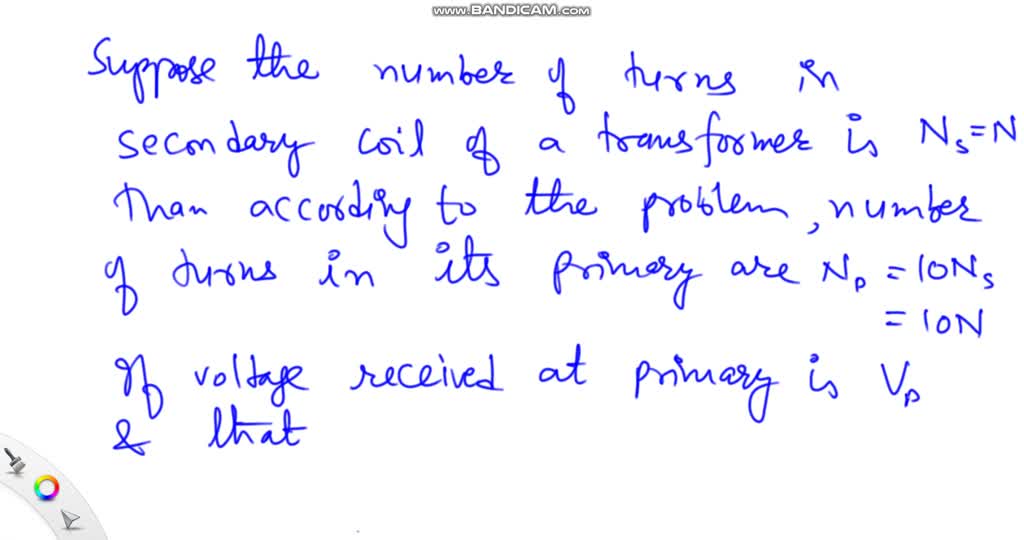 www.BANDICAM.com
Suppose the number of turns in
secondary coil of a transformer is Ns = N
Than according to the problem, number
of turns in its primary are Np = 10Ns
= 10N
If voltage received at primary is Vp
& that